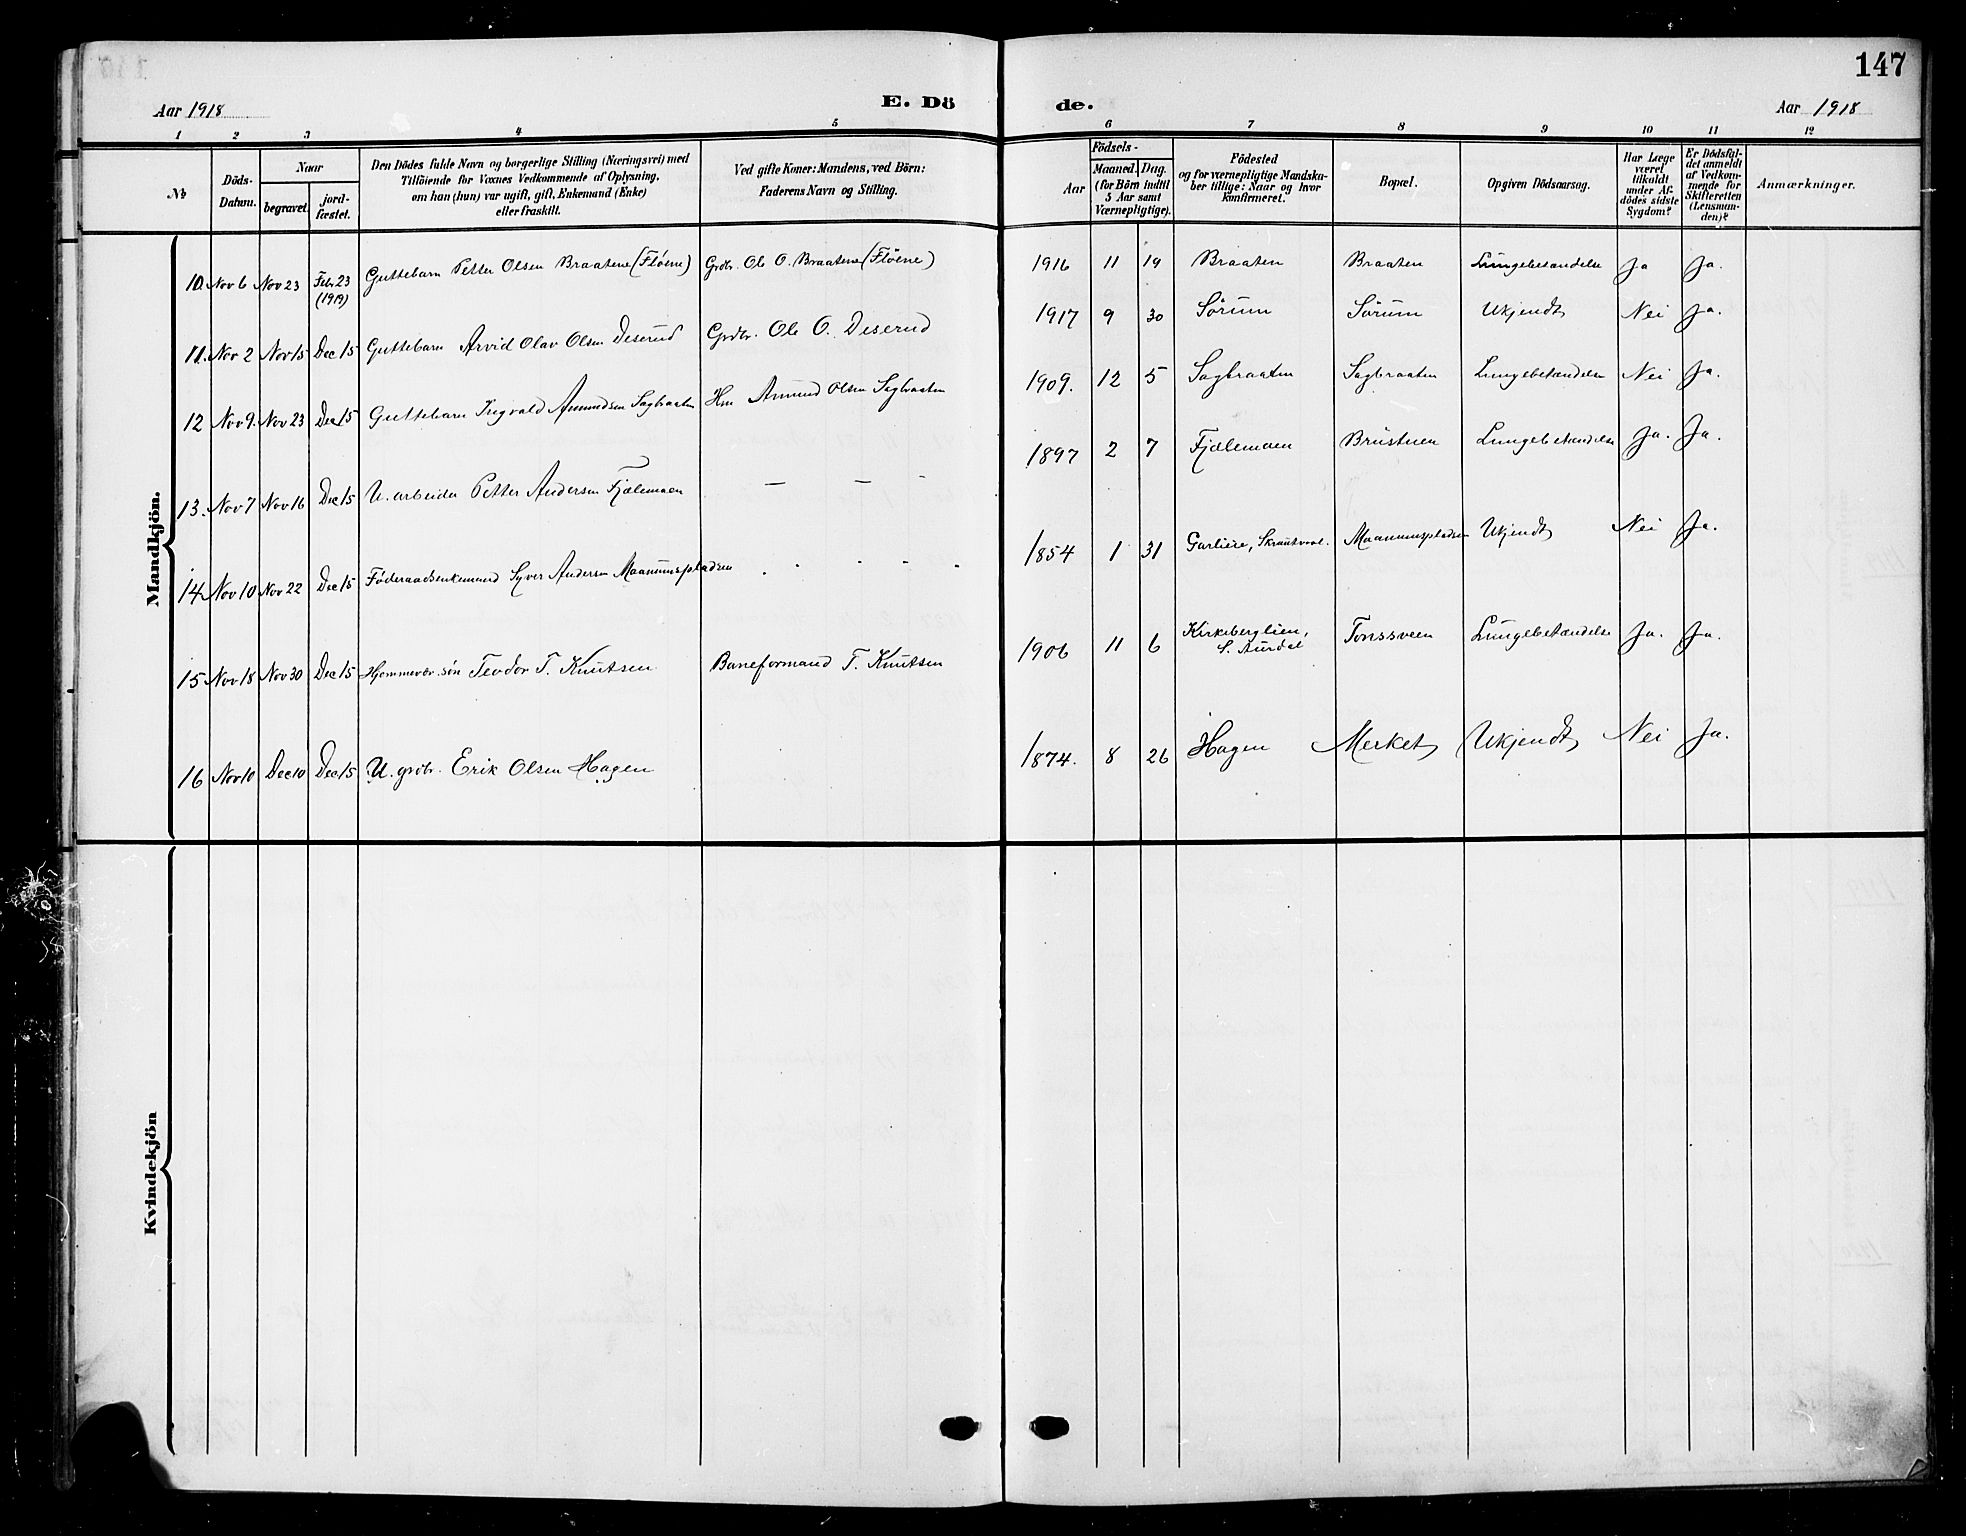 147
Aar 1918
E. Dö
de.
Aar 1918
1 2 3 4 5 6 7 8 9 10 11 12
№
Döds-
Datum.
Naar
begravet.
jord-
fæstet.
Den Dödes fulde Navn og borgerlige Stilling (Næringsvei) med
Tilföiende for Voxnes Vedkommende af Oplysning,
om han (hun) var ugift, gift, Enkemand (Enke)
eller fraskilt.
Ved gifte Koner: Mandens, ved Börn:
Faderens Navn og Stilling.
Födsels-
Aar
Maaned.
Dag.
(for Börn indtil
5 Aar samt
Værnepligtige).
Födested
og for værnepligtige Mandska-
ber tillige: Naar og hvor
konfirmeret.
Bopæl.
Opgiven Dödsaarsag.
Har Læge
været
tilkaldt
under Af-
dödes sidste
Sygdom?
Er Dödsfal-
det anmeldt
af Vedkom-
mende for
Skifteretten
(Lensman-
den)?
Anmærkninger.
Mandkjön.
10. Nov 6 Nov 23 Febr. 23 (1919) Guttebarn Petter Olsen Braatene (Fløene) Grdbr. Ole O. Braatene (Fløene) 1916 11 19 Braaten Braaten Lungebetændelse Ja Ja.
11. Nov 2 Nov 15 Dec 15 Guttebarn Arvid Olav Olsen Deserud Grdbr. Ole O. Deserud 1917 9 30 Sørum Sørum Ukjendt Nei Ja.
12 Nov 9. Nov 23 Dec 15 Guttebarn Ingvald Amundsen Sagbraaten Hm Amund Olsen Sagbraaten 1909. 12 5 Sagbraaten Sagbraaten Lungebetændelse Nei Ja.
13. Nov 7 Nov 16 Dec 15 U. arbeider Petter Andersen Fjælemoen — — - 1897 2 7 Fjælemoen Brustuen Lungebetændelse Ja. Ja.
14. Nov 10 Nov 22 Dec 15 Føderaadsenkemand Syver Andersen Maanumspladsen 1854 1 31 Garliere, Skrautvaal. Maanumspladsen Ukjendt Nei Ja.
15 Nov 18 Nov 30 Dec 15 Hjemmevær. søn Teodor T. Knutsen Baneformand T. Knutsen 1906 11 6 Kirkeberglien, S. Aurdal Tonssveen Lungebetændelse Ja. Ja.
16 Nov 10 Dec 10 Dec 15 U. grdbr. Erik Olsen Hagen 1874. 8 26 Hagen Merket Ukjendt Nei Ja.
Kvindekjön